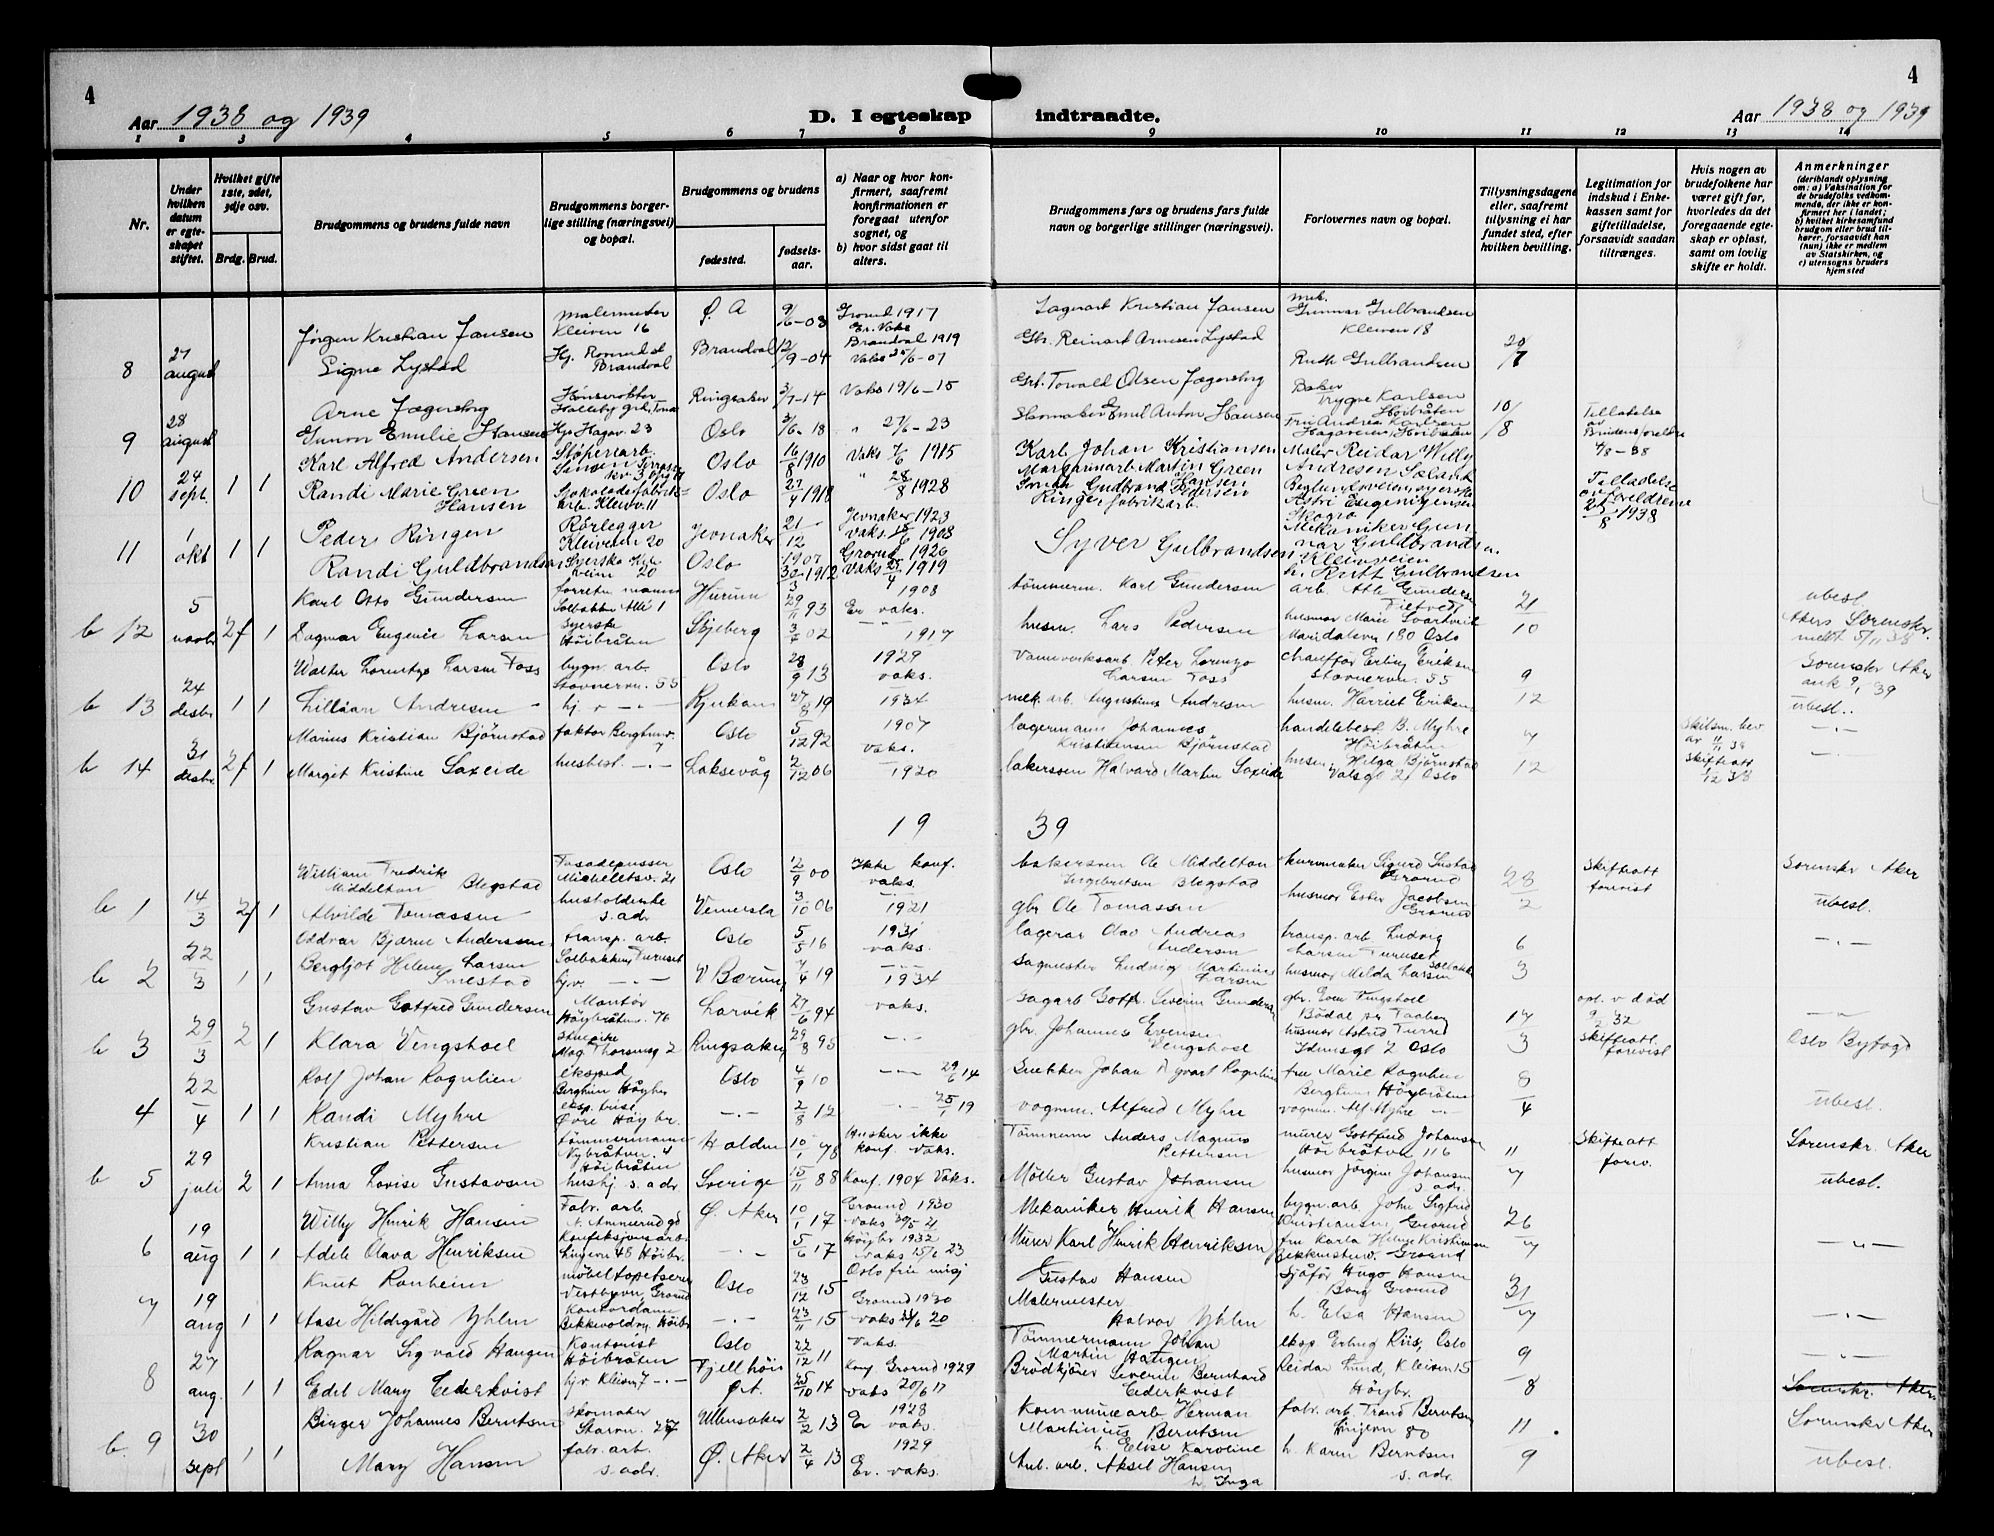 4
4
Aar 1938 og 1939
D. I egteskap
indtraadte.
Aar 1938 og 1939
1 2 3 4 5 6 7 8 9 10 11 12 13 14
Nr.
Under hvilken datum er egteskapet stiftet.
Hvilket gifte 1ste, 2det, 3dje osv.
Brdg. Brud.
Brudgommens og brudens fulde navn
Brudgommens borgerlige stilling (næringsvei) og bopæl.
Brudgommens og brudens
fødested.
fødselsaar.
a) Naar og hvor konfirmert, saafremt konfirmationen er foregaat utenfor sognet, og
b) hvor sidst gaat til alters.
Brudgommens fars og brudens fars fulde navn og borgerlige stillinger (næringsvei).
Forlovernes navn og bopæl.
Tillysningsdagene eller, saafremt tillysning ei har fundet sted, efter hvilken bevilling.
Legitimation for indskud i Enkekassen samt for giftetilladelse, forsaavidt saadan tiltrænges.
Hvis nogen av brudefolkene har været gift før, hvorledes da det foregaaende egteskap er opløst, samt om lovlig skifte er holdt.
Anmerkninger
(deriblandt oplysning om: a) Vaksination for de brudefolks vedkommende, der ikke er konfirmert her i landet; b) hvilket kirkesamfund brudgom eller brud tilhører, forsaavidt han (hun) ikke er medlem av Statskirken, og c) utensogns bruders hjemsted
Jørgen Kristian Jansen Kleiven 16 Ø. A 9/6-08 Grorud 1917 Kristian Jansen Gunnar Gulbrandsen Kleiven 18
8 27 august Signe Lystad Brandval Brandval 12/9-04 Brandval 1919 Reinart Arnesen Lystad Ruth Gulbrandsen 20/7
Arne Jægersborg Ringsaker 3/7-14 Vaks 19/6-15 Torvald Olsen Jægersborg Baker Trygve Karlsen Høibråten
9 28 august Gunvor Emilie Hansen Oslo 3/6-18 27/6-23 Emil Anton Hansen 10/8 Tilladelse av Brudens foreldre 4/8-38
Karl Alfred Andersen Støperiarb. Oslo 16/8 1910 Vaks 7/6 1915 Karl Johan Kristiansen Maler Reidar Willy Andresen
10 24 sept. 1 1 Randi Marie Green Hansen Sjokoladefabrikarb. Kleivv. 11 Oslo 27/4 1918 28/8 1928 Margarinarb. Martin Green Hansen Tilladelse av foreldrene 25/8 1938
Peder Ringen Rørlegger Kleiven 20 Jevnaker 21/12 1907 Jevnaker 1923 Vaks. 1908 Ringen fabrikarb. Mekaniker Gunnar Guldbrandsen
11 1 okt 1 1 Randi Guldbrandsen Syerske Oslo 30/3 1912 Grorud 1926 vaks 25/4 1919 Syver Gulbrandsen Kleivveien Rutt Gulbrandsen
Karl Otto Gundersen Solbakken Alle 1 Hurum 29/11 93 1908 Er vaks. tømmerm. Karl Gundersen arb. Atle Gundersen Tietvedt ubest.
b 12 5 novbr 2f 1 Dagmar Eugenie Larsen Syerske Høibråten Skjeberg 3/4 02 1917 husm. Lars Pedersen husmor Marie Svartvik Maridalsvn 180 Oslo 21/10 Akers Sorenskr. meldt 5/11 38
Walter Lorentzo Larsen Foss bygn. arb. Stovnervn. 55 Oslo 28/9 13 1929 vaks. Vannverksarb. Peter Lorenzo Larsen Foss chauffør Erling Eriksen Stovnervn. 55 9 Sorenskr Aker
b 13 24 desbr 1 1 Lillian Andresen hj v -"- Rjukan 27/8 19 1934 mek. arb. Augustinus Andresen husm. Harriet Eriksen 12 ubest.
Marius Kristian Bjørnstad faktor Berghmv. 7 Oslo 5/12 92 1907 vaks. lagermann Johannes Kristiansen Bjørnstad handelsbest. B. Myhre Høibråten 7 Skilsm. bev av 11/11 38 -"-
b 14 31 desbr 2f 1 Margit Kristine Saxeide husbest. -"- Laksevåg 2/12 06 1920 bakersven Halvard Martin Saxeide husm. Helga Bjørnstad Valsgt 21 Oslo 12 skifteatt 1/12 38
19 39
William Fredrik Middelton Blegstad Fasadepusser Micheletsv. 21 Oslo 12/9 00 Ikke konf. vaks. bakersven Ole Middelton Ingebretsen Blegstad Grorud 28 Skifteatt forevist Sorenskr Aker
b 1 14/3 2f 1 Alvilde Tomassen husholderske s. adr Vennersla 3/10 06 1921 gbr Ole Tomassen husmor Ester Jacobsen Grorud 2 ubest.
Oddvar Bjarne Anderssen transp. arb. Solbakken, Furuset Oslo 5/5 16 1931 vaks. lagerar Olav Andreas Andersen transp. arb. Ludvig Larsen Furuset 6 -"-
b 2 22/3 1 1 Bergljot Helene Larsen Smestad hjv. -"- V Bærum 7/4 19 1934 Sagmester Ludvig Martinius Larsen husmor Milda Larsen Solbakken 3
Gustav Gotfred Gundersen Montør Høybråtvn. 76 Larvik 27/6 94 vaks. Sagarb Gotfr. Severin Gundersen gbr. Even Fingshoel 17 opl. v død 9/2 32 -"-
b 3 29/3 2 1 Klara Vengshoel Mag. Thorsensg 2 Ringsaker 29/8 95 -"- gbr. Johannes Evensen Vengshoel husmor Astrid Furred Idunsgt 2 Oslo 3 Skifteatt. forevist Oslo Byfogd
Rolf Johan Rognlien eksped Berghmv Høybr Oslo 4/9 10 -"- 29/6 14 Snekker Johan Nyvart Rognlien fru Marie Rognlien Berghmv Høybråten 8
4 22/4 1 1 Randi Myhre eksp. trise Øvre Høybr. -"- 2/8 12 25/1 19 vognm. Alfred Myhre vognm. Alf Myhre -"- 4 ubest.
Kristian Pettersen tømmermann Nybråtvn. 4 Høibråten Halden 10/1 78 Husker ikke konf. Vaks. Tømmerm Anders Magnus Pettersen murer Gottfred Johansen Høibråtvn 116 11 Skifteatt forev. Sorenskr. Aker
b 5 29 juli 2 1 Anna Lovise Gustavsen hushj s. adr Sverige 15/11 88 Konf. 1904 Vaks. Møller Gustav Johansen husmor Jørgine Johansen s adr. 7 ubest.
Willy Henrik Hansen Fabr. arb. N. Ammerud gd Ø. Aker 10/1 17 Grorud 1930 vaks 30/5 21 Mekaniker Henrik Hansen bygn. arb. John Sigfred Kristiansen, Grorud 26
6 19 aug 1 1 Adele Olava Henriksen Konfeksjonsarb. Lingevn 48 Høibr. -"- 5/6 17 Høybr 1932 vaks 15/6 23 Murer Karl Henrik Henriksen fru Karla Helene Kristiansen Bekkestuv. Grorud 7 -"-
Knut Ronheim møbeltapetserer Vestbyvn Grorud Oslo 23/12 15 Oslo frie misj Gustav Hansen Sjåfør Hugo Hansen Borg Grorud 31
7 19 aug 1 1 Aase Hildegård Yhlen Kontordame Bekkevoldvn, Høibr. -"- 23/11 15 Grorud 1930 vaks 24/6 20 Malermester Halvor Yhlen h. Elsa Hansen 7 -"-
Ragnar Sigvald Haugen Kontorist Høibråten Oslo 22/12 11 Vaks. Tømmermann Johan Martin Haugen eksp. Erling Riis, Oslo 9 -"-
8 27 aug. 1 1 Edel Mary Cederkvist hjv Kleivn 7 -"- Fjellhöi Ørt. 25/10 14 Konf Grorud 1929 vaks 20/6 17 Brödkjörer Severin Bernhard Cederkvist Reidar Lund, Kleivn 15 Höybr. 8 Sorenskr. Aker
Birger Johannes Berntsen skomaker Starvn. 27 Ullensaker 2/2 13 1928 Er vaks. Kommunearb Herman Martinius Berntsen h. Elise Karoline fabr. arb. Trond Berntsen Lingevn 80 11 Sorenskr Aker
b. 9 30 sept 1 1 Mary Hansen fabr. arb. s. adr. Ø. Aker 2/4 13 1929 Er. vaks. Anl. arb. Aksel Hansen h. Inga h. Karin Berntsen s. adr. 9 ubest.